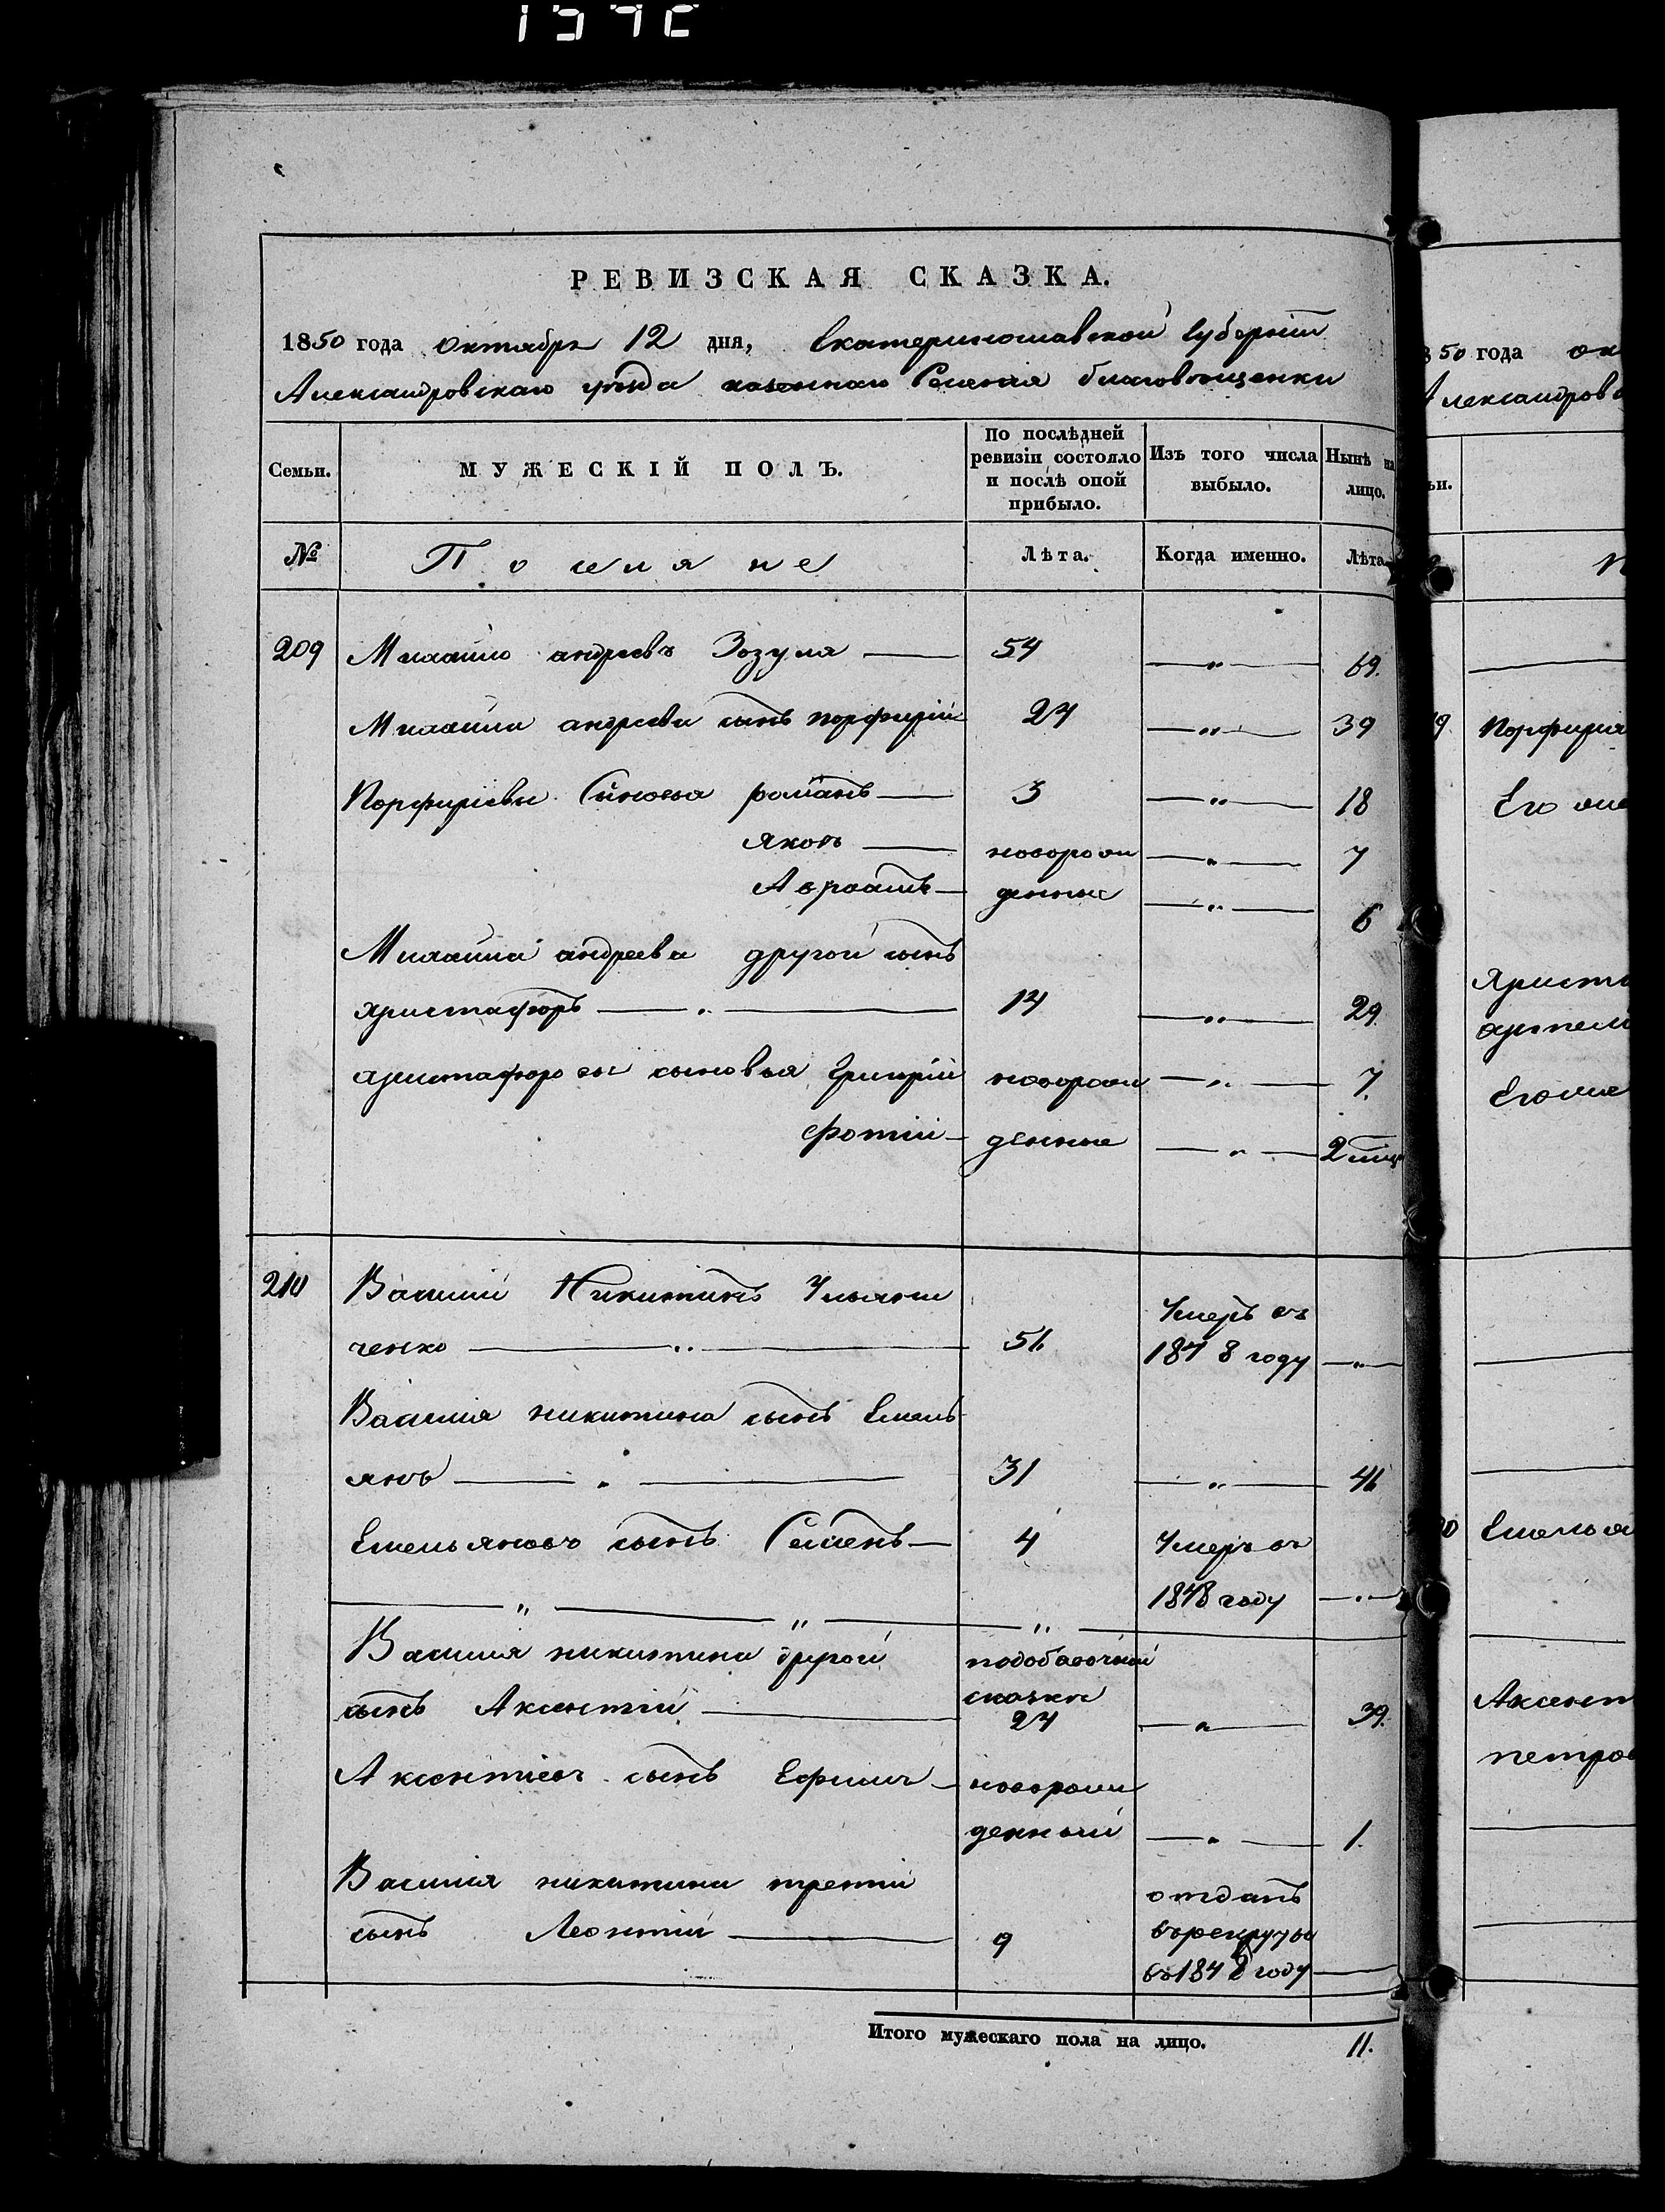 РЕВИЗСКАЯ СКАЗКА.
1850 года октября 12 дня, Екатеринославской Губерніи
Александровскаго уѣзда казеннаго Селенія благовѣщенки
Семьи.
МУЖЕСКІЙ ПОЛЪ.
По послѣдней
ревизіи состояло
и послѣ оной
прибыло.
Изъ того числа
выбыло.
Нынѣ на
лицо.
№
Поселяне
Лѣта.
Когда именно.
Лѣта.
209 Михайло андреевъ Зозуля — 54 — „ — 69.
Михайли андреева сынъ порфирій 24 — „ — 39
Порфиріевы Сыновья романъ — 3 — „ — 18
яковъ — новорож — „ — 7
Авраамъ — денные — „ — 6
Михайла андреева другой сынъ
христафоръ — „ — 14 — „ — 29.
христафоровы сыновья Григорій новорож — „ — 7.
фотій — денные — „ — 2 мѣц
210 Василій Никитинъ Ульяни
ченко — „ — 56 Умеръ въ
1848 году — „ —
Василія никитина сынъ Емель
янъ — „ — 31 — „ — 46
Емельяновъ сынъ Семенъ — 4 Умеръ въ
1848 году — „ —
Василія никитина другой подобавочной
сынъ Аксентій — сказки
24 — „ — 39.
Аксентіевъ сынъ Ефимъ — новорож
денный — „ — 1.
Василія никитина третій отданъ
сынъ Леонтій — 9 въ рекруты
въ 1848 году —
Итого мужескаго пола на лицо. 11.
850 года ок
Александров
ьи.
Порфирія
Его
Христ
Емелья
Аксент
петров